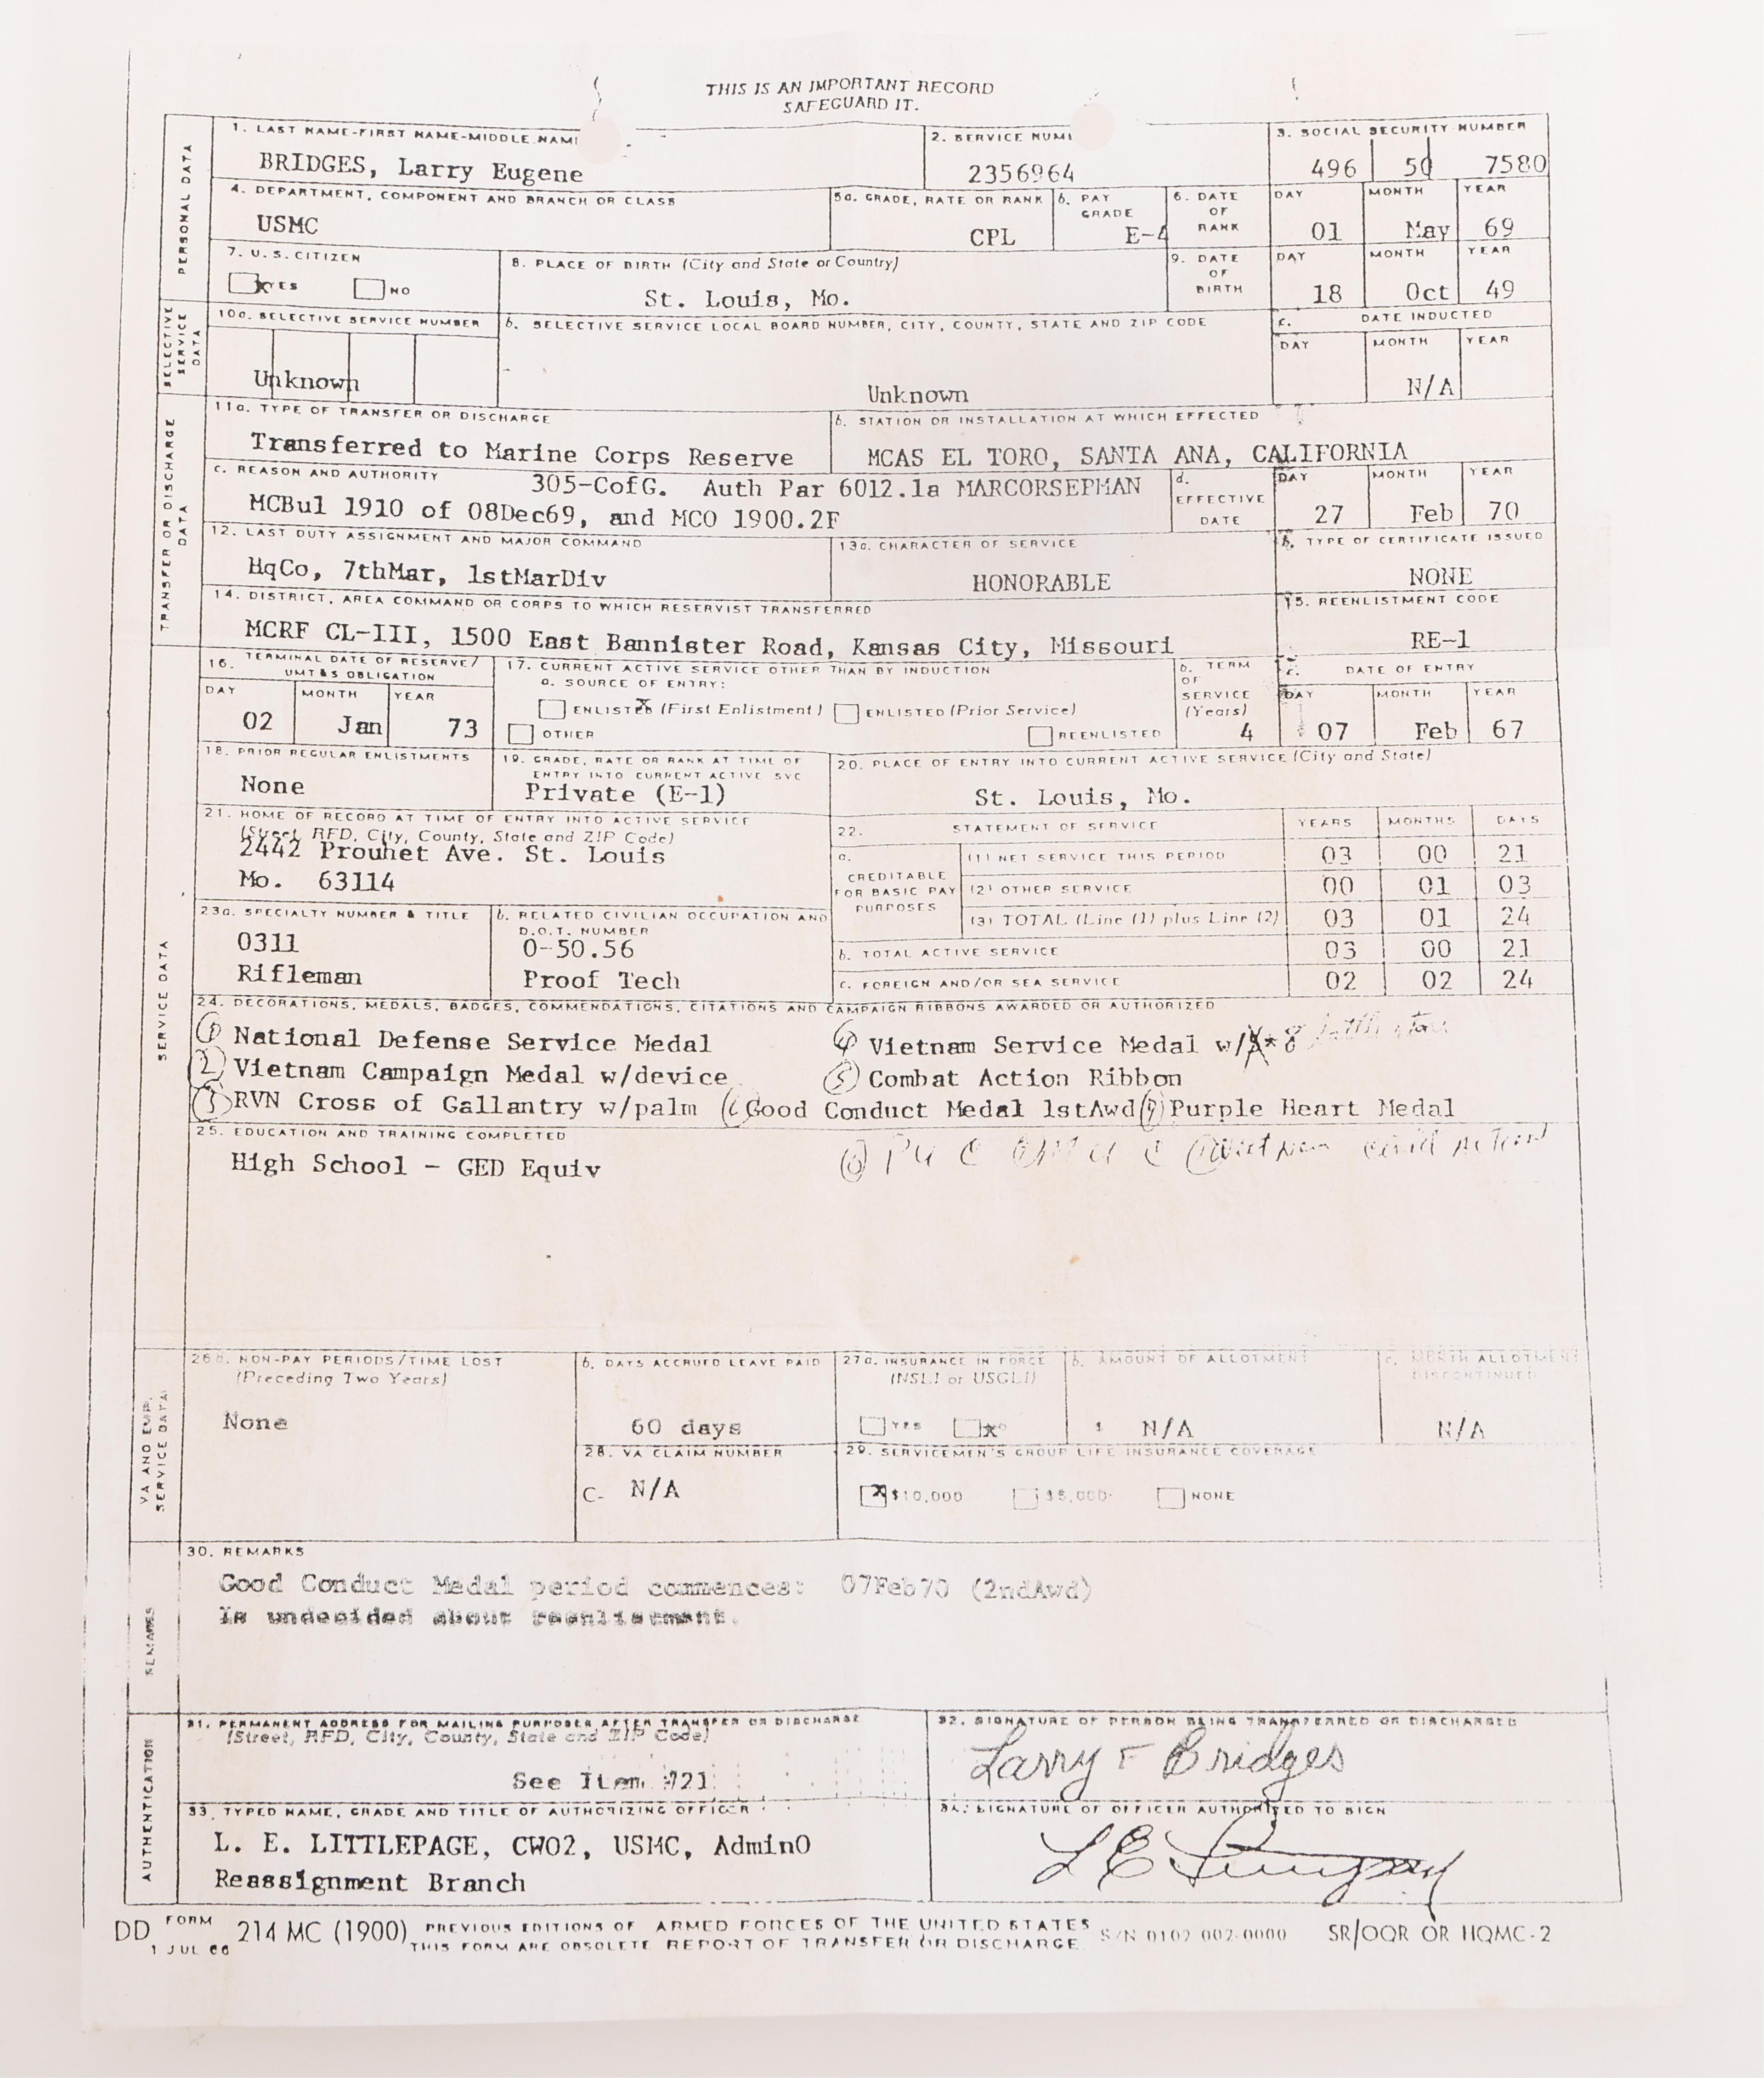 THIS IS AN IMPORTANT RECORD
SAFEGUARD IT.
PERSONAL DATA
1. LAST NAME-FIRST NAME-MIDDLE NAM
2. SERVICE NUM
3. SOCIAL SECURITY NUMBER
BRIDGES, Larry Eugene
2356964
496 50 7580
4. DEPARTMENT, COMPONENT AND BRANCH OR CLASS
5a. GRADE, RATE OR RANK
b. PAY GRADE
6. DATE OF RANK
DAY MONTH YEAR
USMC
CPL
E-4
01 May 69
7. U. S. CITIZEN
8. PLACE OF BIRTH (City and State or Country)
9. DATE OF BIRTH
DAY MONTH YEAR
X YES NO
St. Louis, Mo.
18 Oct 49
SELECTIVE SERVICE DATA
10a. SELECTIVE SERVICE NUMBER
b. SELECTIVE SERVICE LOCAL BOARD NUMBER, CITY, COUNTY, STATE AND ZIP CODE
c. DATE INDUCTED
DAY MONTH YEAR
Unknown
Unknown
N/A
TRANSFER OR DISCHARGE DATA
11a. TYPE OF TRANSFER OR DISCHARGE
b. STATION OR INSTALLATION AT WHICH EFFECTED
Transferred to Marine Corps Reserve
MCAS EL TORO, SANTA ANA, CALIFORNIA
c. REASON AND AUTHORITY
305-CofG. Auth Par 6012.1a MARCORSEPMAN
MCBul 1910 of 08Dec69, and MCO 1900.2F
d. EFFECTIVE DATE
DAY MONTH YEAR
27 Feb 70
12. LAST DUTY ASSIGNMENT AND MAJOR COMMAND
13a. CHARACTER OF SERVICE
b. TYPE OF CERTIFICATE ISSUED
HqCo, 7thMar, 1stMarDiv
HONORABLE
NONE
14. DISTRICT, AREA COMMAND OR CORPS TO WHICH RESERVIST TRANSFERRED
15. REENLISTMENT CODE
MCRF CL-III, 1500 East Bannister Road, Kansas City, Missouri
RE-1
SERVICE DATA
16. TERMINAL DATE OF RESERVE/
UMT&S OBLIGATION
DAY MONTH YEAR
02 Jan 73
17. CURRENT ACTIVE SERVICE OTHER THAN BY INDUCTION
a. SOURCE OF ENTRY:
ENLISTED (First Enlistment) ENLISTED (Prior Service)
OTHER REENLISTED
b. TERM OF SERVICE (Years)
4
c. DATE OF ENTRY
DAY MONTH YEAR
07 Feb 67
18. PRIOR REGULAR ENLISTMENTS
None
19. GRADE, RATE OR RANK AT TIME OF
ENTRY INTO CURRENT ACTIVE SVC
Private (E-1)
20. PLACE OF ENTRY INTO CURRENT ACTIVE SERVICE (City and State)
St. Louis, Mo.
21. HOME OF RECORD AT TIME OF ENTRY INTO ACTIVE SERVICE
(Street, RFD, City, County, State and ZIP Code)
2442 Prouhet Ave. St. Louis
Mo. 63114
22. STATEMENT OF SERVICE
YEARS MONTHS DAYS
a. CREDITABLE FOR BASIC PAY PURPOSES
(1) NET SERVICE THIS PERIOD 03 00 21
(2) OTHER SERVICE 00 01 03
(3) TOTAL (Line (1) plus Line (2) 03 01 24
b. TOTAL ACTIVE SERVICE 03 00 21
c. FOREIGN AND/OR SEA SERVICE 02 02 24
23a. SPECIALTY NUMBER & TITLE
0311
Rifleman
b. RELATED CIVILIAN OCCUPATION AND
D.O.T. NUMBER
0-50.56
Proof Tech
24. DECORATIONS, MEDALS, BADGES, COMMENDATIONS, CITATIONS AND CAMPAIGN RIBBONS AWARDED OR AUTHORIZED
1 National Defense Service Medal 4 Vietnam Service Medal w/ * 8
2 Vietnam Campaign Medal w/device 5 Combat Action Ribbon
3 RVN Cross of Gallantry w/palm Good Conduct Medal 1stAwd Purple Heart Medal
25. EDUCATION AND TRAINING COMPLETED
High School - GED Equiv
VA AND EMP. SERVICE DATA
26a. NON-PAY PERIODS/TIME LOST
(Preceding Two Years)
None
b. DAYS ACCRUED LEAVE PAID
60 days
27a. INSURANCE IN FORCE
(NSLI or USGLI)
YES X NO
b. AMOUNT OF ALLOTMENT
$ N/A
c. MONTH ALLOTMENT
DISCONTINUED
N/A
28. VA CLAIM NUMBER
C- N/A
29. SERVICEMEN'S GROUP LIFE INSURANCE COVERAGE
X $10,000 $5,000 NONE
REMARKS
30. REMARKS
Good Conduct Medal period commences: 07Feb70 (2ndAwd)
Is undecided about reenlistment.
AUTHENTICATION
31. PERMANENT ADDRESS FOR MAILING PURPOSES AFTER TRANSFER OR DISCHARGE
(Street, RFD, City, County, State and ZIP Code)
See Item #21
32. SIGNATURE OF PERSON BEING TRANSFERRED OR DISCHARGED
Larry E Bridges
33. TYPED NAME, GRADE AND TITLE OF AUTHORIZING OFFICER
L. E. LITTLEPAGE, CWO2, USMC, AdminO
Reassignment Branch
34. SIGNATURE OF OFFICER AUTHORIZED TO SIGN
DD FORM 1 JUL 66 214 MC (1900) PREVIOUS EDITIONS OF THIS FORM ARE OBSOLETE
ARMED FORCES OF THE UNITED STATES
REPORT OF TRANSFER OR DISCHARGE
S/N 0102-002-0000 SR/OQR OR HQMC-2